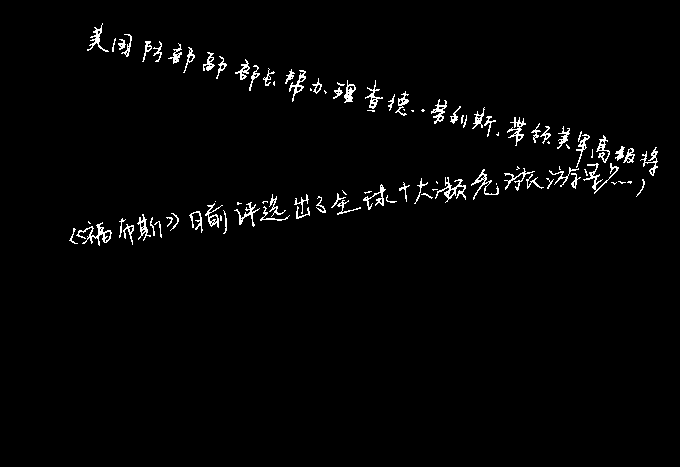 美国防部副部长帮办理查德··劳利斯,带领美军高级将
《福布斯》日前评选出了全球十大濒危旅游景点,